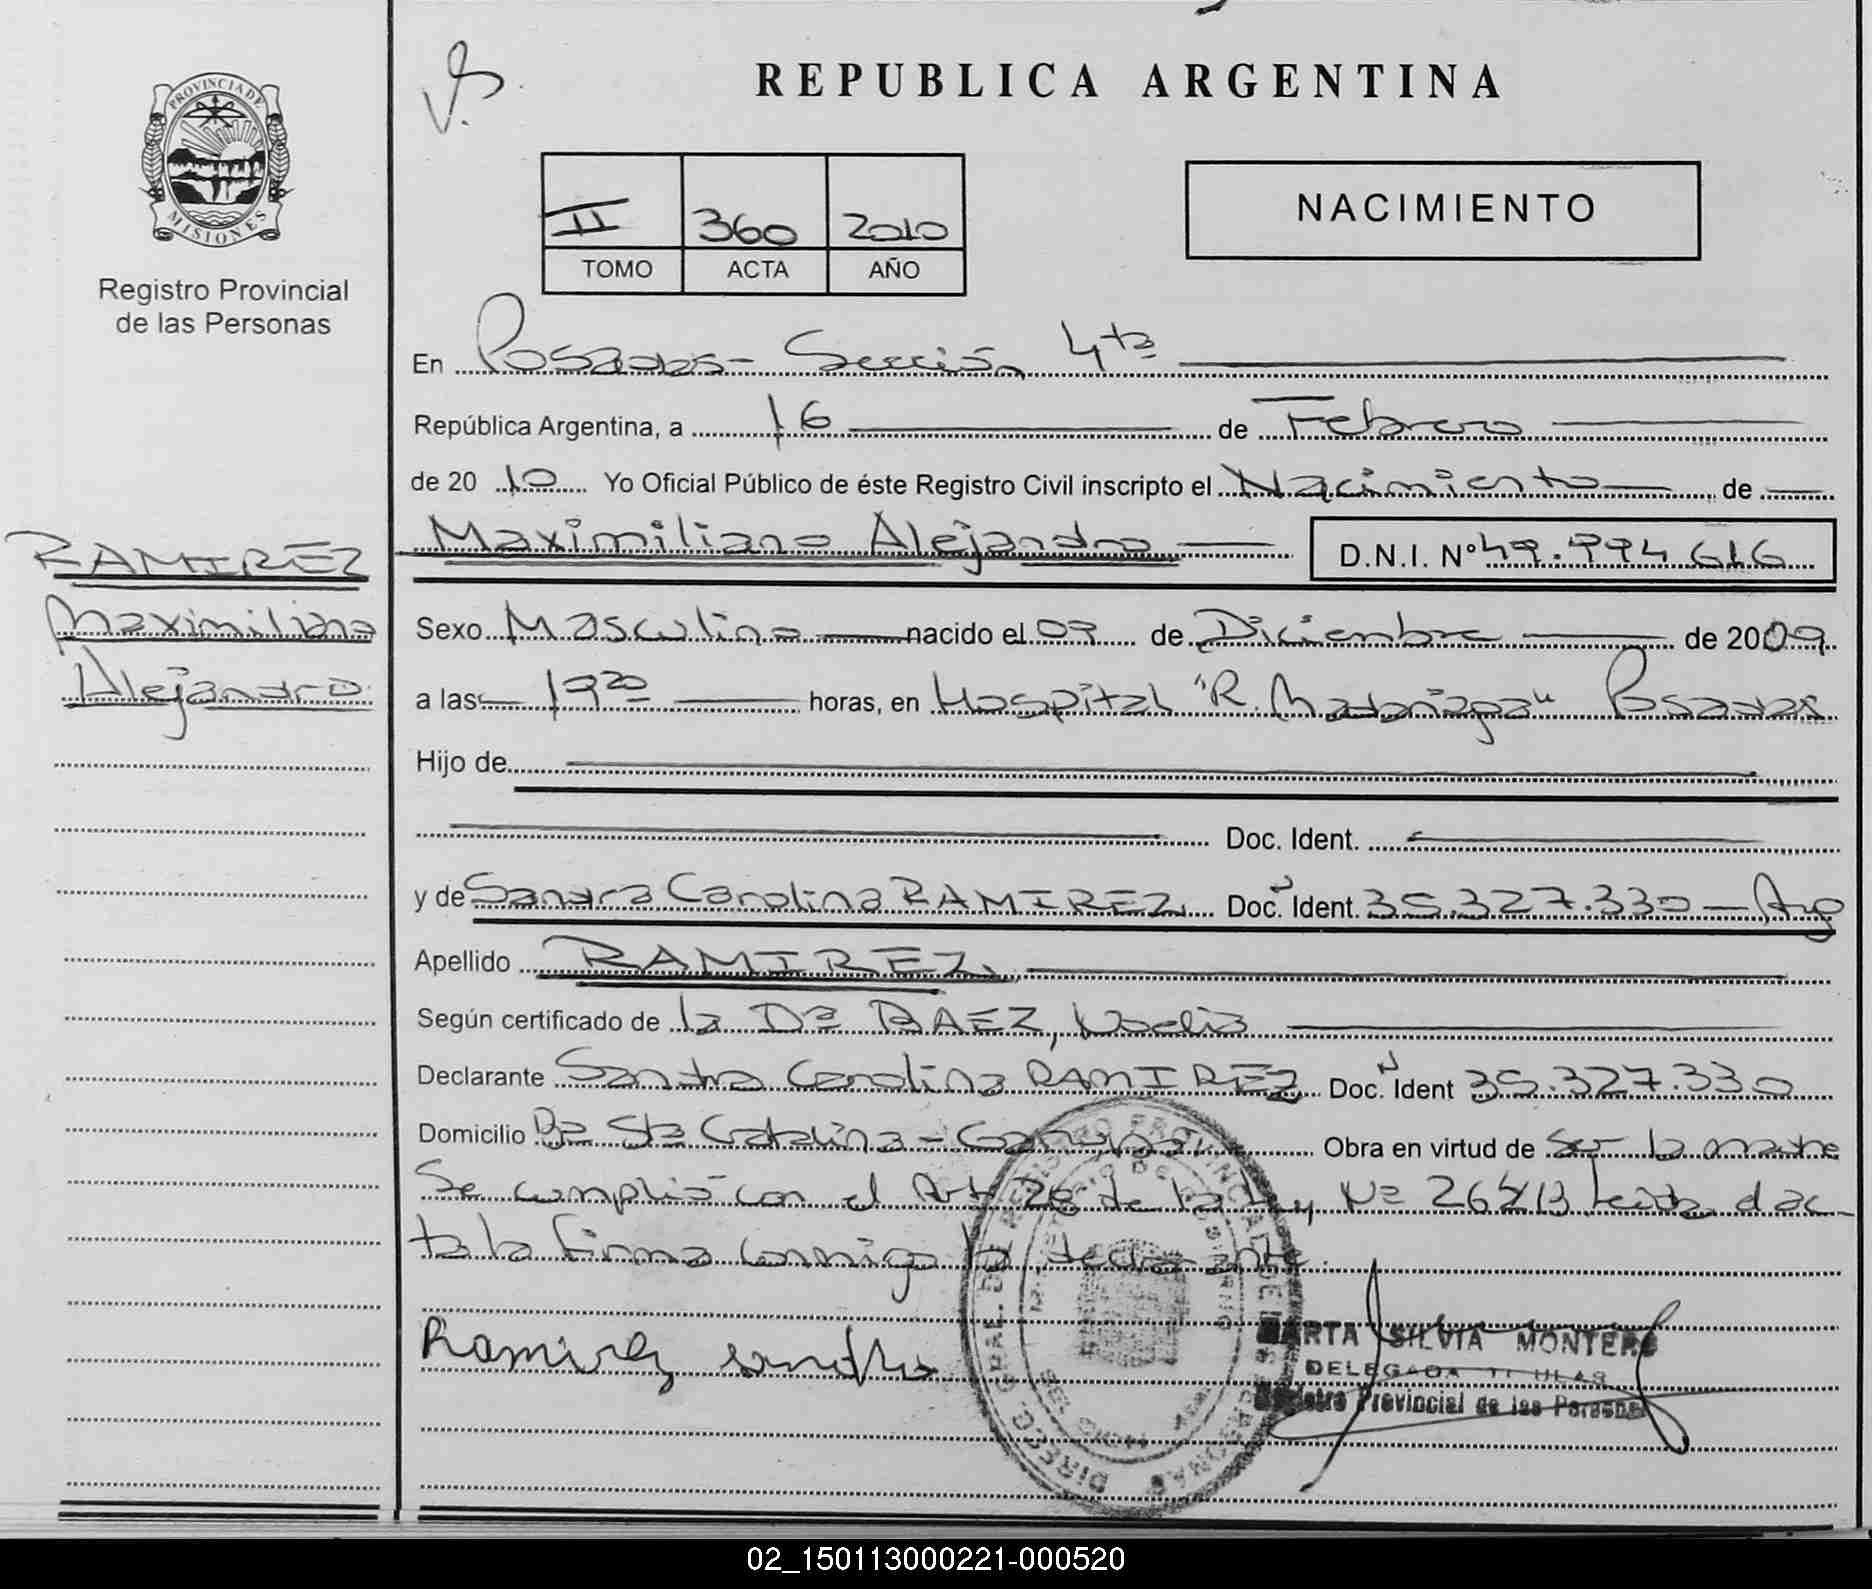 PROVINCIA DE
MISIONES
Registro Provincial
de las Personas
RAMIREZ
Maximiliano
Alejandro
REPUBLICA ARGENTINA
II 360 2010
TOMO ACTA AÑO
NACIMIENTO
En Posadas - Sección 4ta
República Argentina, a 16 de Febrero
de 2010 Yo Oficial Público de éste Registro Civil inscripto el Nacimiento de
Maximiliano Alejandro D.N.I. Nº 49.994.616
Sexo Masculino nacido el 09 de Diciembre de 2009
a las 19 20 horas, en Hospital "R. Madariaga" Posadas
Hijo de
Doc. Ident.
y de Sandra Carolina RAMIREZ Doc. Ident. 35.327.330 - Arg
Apellido RAMIREZ
Según certificado de la Dra BAEZ, Noelia
Declarante Sandra Carolina RAMIREZ Doc. Ident 35.327.330
Domicilio Bº Sta Catalina - Garupá Obra en virtud de Ser la madre
Se cumplió con el Art 28 de la Ley Nº 26413, leída el ac-
ta la firma conmigo la declarante.
Ramirez Sandra
MARTA SILVIA MONTERO
DELEGADA TITULAR
Registro Provincial de las Personas
02_150113000221-000520